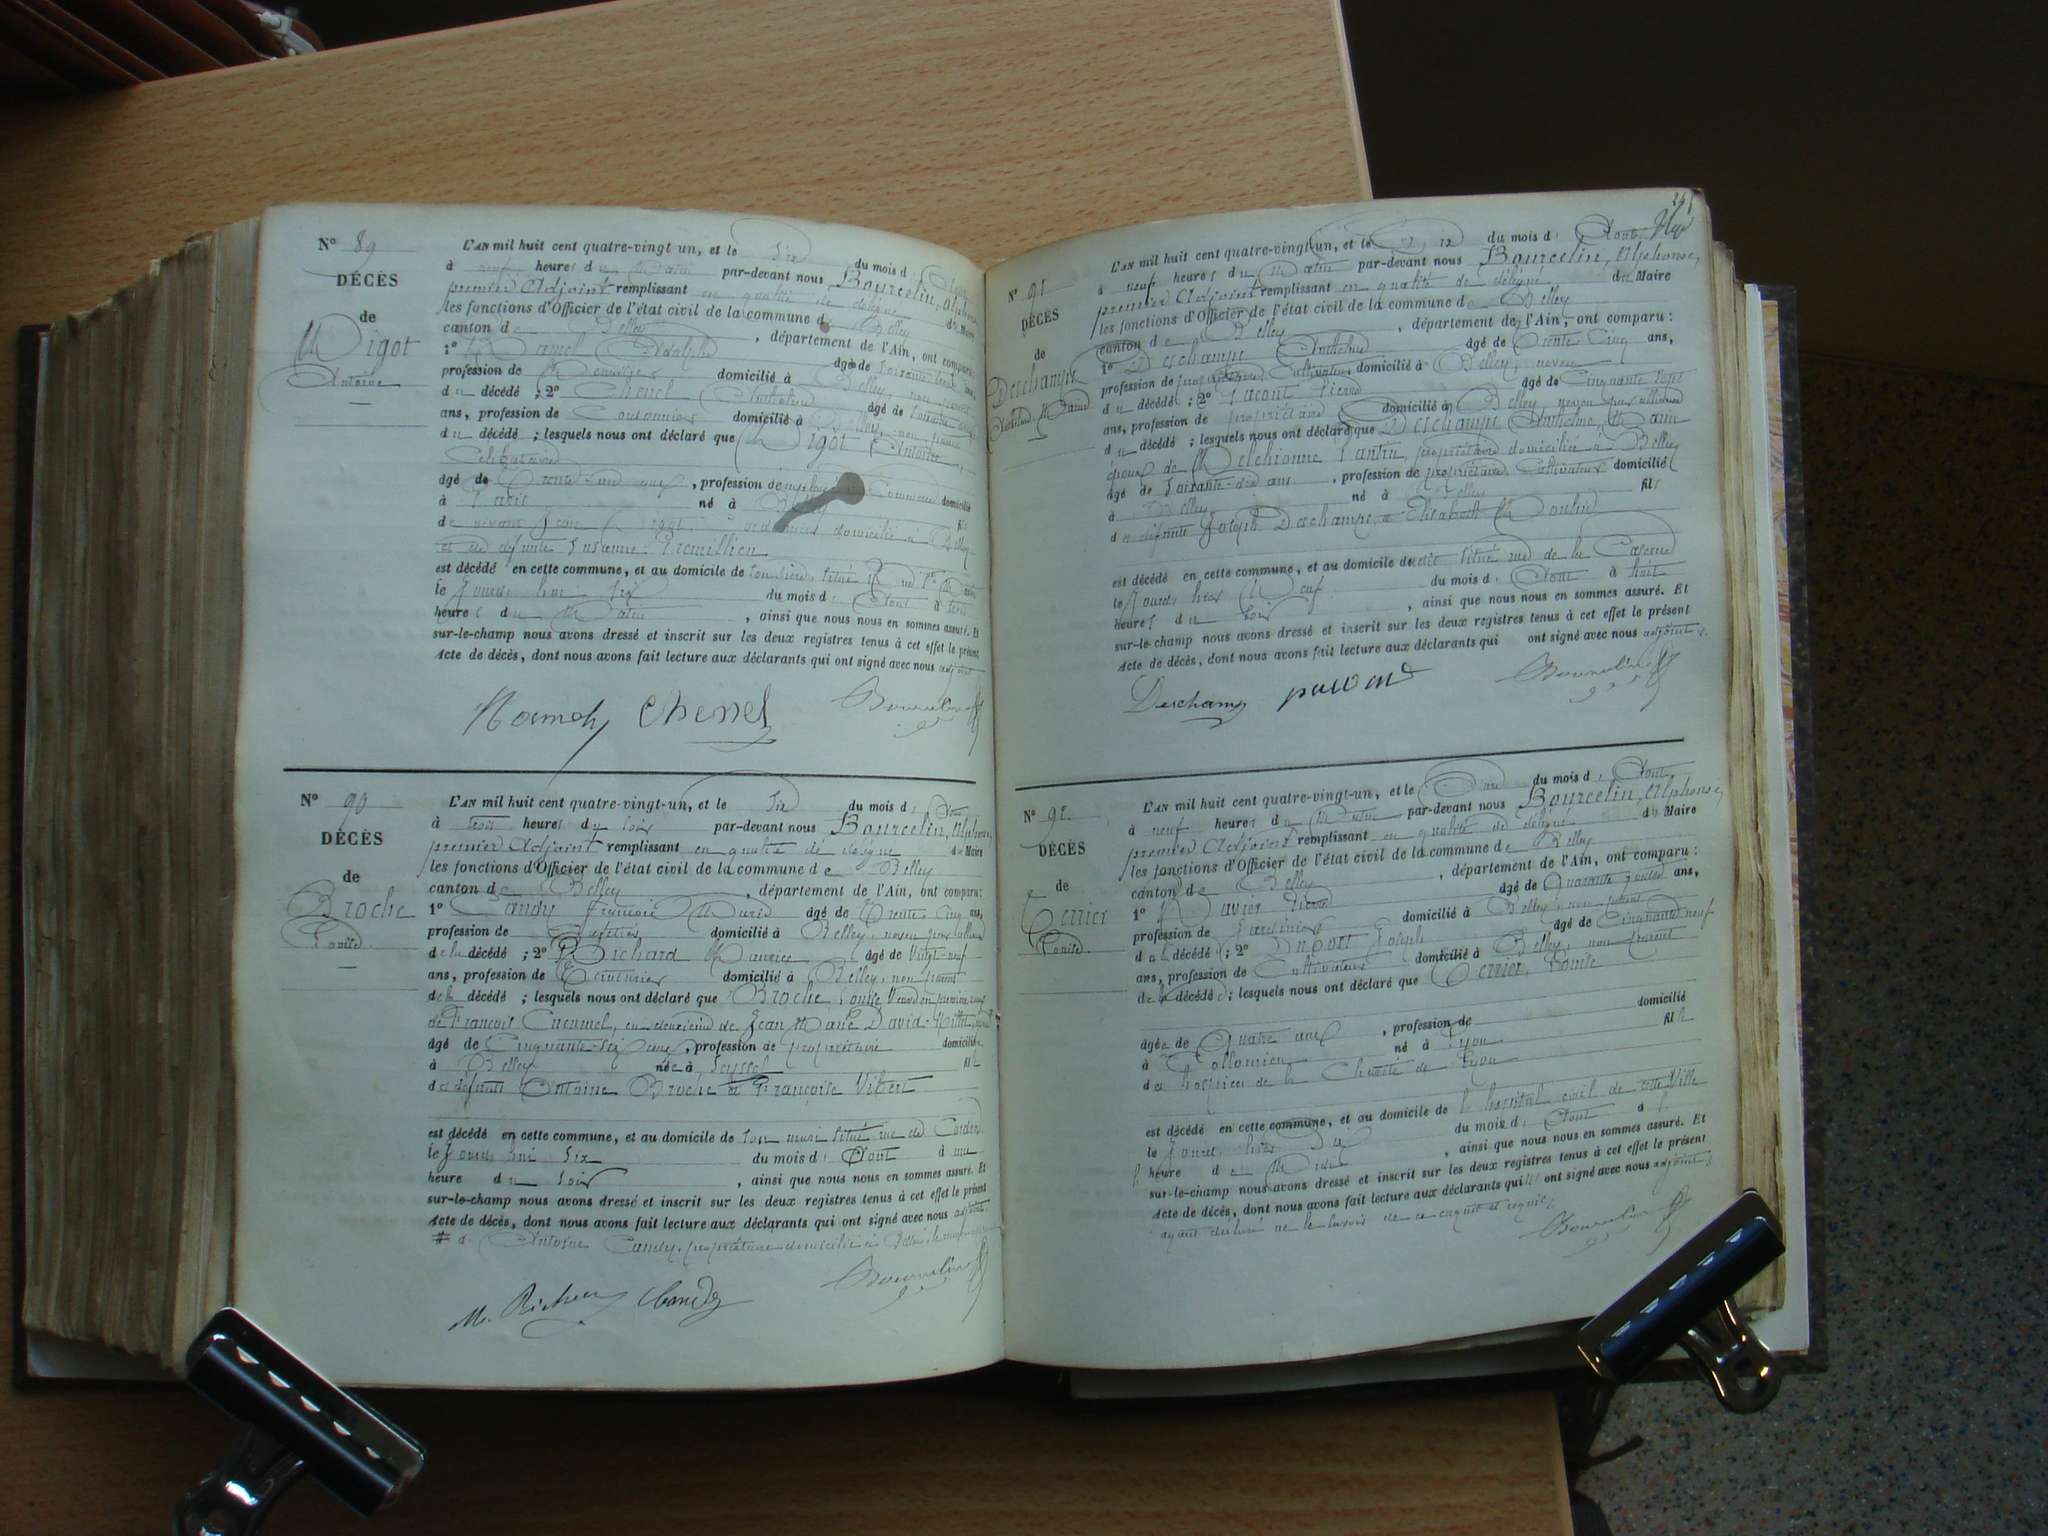 N° 89
DÉCÈS
de
Digot
Antoine
L'AN mil huit cent quatre-vingt un, et le Six du mois d'
à neuf heures du Matin par-devant nous Bourcelin, Alphonse,
premier Adjoint remplissant en qualité de délégué du Maire
les fonctions d'Officier de l'état civil de la commune de Belley
canton de Belley, département de l'Ain, ont comparu:
1° Adolphe âgé de Soixante ans,
profession de domicilié à Belley, non parent
du décédé ; 2° Chenel Anthelme âgé de
ans, profession de Cordonnier domicilié à Belley, non parent
du décédé ; lesquels nous ont déclaré que Digot Antoine,
Célibataire
âgé de Trente-un ans, profession de employé de Commerce domicilié
à Paris né à Belley fils
de vivant Jean domicilié à Belley
et de défunte Susanne Premillieu
est décédé en cette commune, et au domicile de son père, situé
le jourd'hui Six du mois d'Août à
heures du Matin, ainsi que nous nous en sommes assuré. Et
sur-le-champ nous avons dressé et inscrit sur les deux registres tenus à cet effet le présent
Acte de décès, dont nous avons fait lecture aux déclarants qui ont signé avec nous adjoint
Chenel Bourcelin
N° 90
DÉCÈS
de
Broche
Louise
L'AN mil huit cent quatre-vingt-un, et le Six du mois d'Août
à trois heures du soir par-devant nous Bourcelin, Alphonse,
premier Adjoint remplissant en qualité de délégué du Maire
les fonctions d'Officier de l'état civil de la commune de Belley
canton de Belley, département de l'Ain, ont comparu:
1° Candy François Marie âgé de Trente Cinq ans,
profession de domicilié à Belley, neveu par alliance
de la décédé ; 2° Richard Maurice âgé de Vingt-neuf
ans, profession de domicilié à Belley, non parent
de la décédé ; lesquels nous ont déclaré que Broche Louise Veuve en premières noces
de François Cuenmel, en deuxième de Jean Marie David
âgée de Cinquante-six ans, profession de propriétaire domiciliée
à Belley née à Seyssel fille
de défunts Antoine Broche et Françoise Vibert
est décédé en cette commune, et au domicile de son mari situé rue de
le jourd'hui Six du mois d'Août à une
heure du soir, ainsi que nous nous en sommes assuré. Et
sur-le-champ nous avons dressé et inscrit sur les deux registres tenus à cet effet le présent
Acte de décès, dont nous avons fait lecture aux déclarants qui ont signé avec nous adjoint
# d' Antoine Candy, propriétaire domicilié à Belley
M. Richard Candy Bourcelin
N° 91
DÉCÈS
de
Deschamps
Anthelme Marin
L'AN mil huit cent quatre-vingt-un, et le Dix du mois d'Août
à neuf heures du Matin par-devant nous Bourcelin, Alphonse,
premier Adjoint remplissant en qualité de délégué du Maire
les fonctions d'Officier de l'état civil de la commune de Belley
canton de Belley, département de l'Ain, ont comparu:
1° Deschamps Anthelme âgé de Trente Cinq ans,
profession de propriétaire Cultivateur domicilié à Belley, neveu
du décédé ; 2° Pacout Pierre âgé de Cinquante sept
ans, profession de propriétaire domicilié à Belley neveu par alliance
du décédé ; lesquels nous ont déclaré que Deschamps Anthelme, Marin
époux de Melchionne Pantin, propriétaire domiciliée à Belley
âgé de Soixante-dix ans, profession de propriétaire Cultivateur domicilié
à Belley né à Belley fils
de défunts Joseph Deschamps, et Elisabeth Moulin
est décédé en cette commune, et au domicile de situé rue de la Caserne
le jourd'hier Neuf du mois d'Août à huit
heures du soir, ainsi que nous nous en sommes assuré. Et
sur-le-champ nous avons dressé et inscrit sur les deux registres tenus à cet effet le présent
Acte de décès, dont nous avons fait lecture aux déclarants qui ont signé avec nous adjoint.
Deschamps Bourcelin
N° 92
DÉCÈS
de
Terrier
Louise
L'AN mil huit cent quatre-vingt-un, et le du mois d'Août
à neuf heures du Matin par-devant nous Bourcelin, Alphonse,
premier Adjoint remplissant en qualité de délégué du Maire
les fonctions d'Officier de l'état civil de la commune de Belley
canton de Belley, département de l'Ain, ont comparu:
1° Pierre âgé de Quarante quatre ans,
profession de Jardinier domicilié à Belley non parent
de la décédé ; 2° Dupont Joseph âgé de Cinquante neuf
ans, profession de Cultivateur domicilié à Belley, non parent
de la décédé ; lesquels nous ont déclaré que Terrier, Louise
âgée de Quatre ans, profession de domicilié
à Collomieu né à Lyon fille
des hospices de la Charité de Lyon
est décédé en cette commune, et au domicile de l'hospital civil de cette Ville
le jourd'hier Dix du mois d'Août à
heure de Midi, ainsi que nous nous en sommes assuré. Et
sur-le-champ nous avons dressé et inscrit sur les deux registres tenus à cet effet le présent
Acte de décès, dont nous avons fait lecture aux déclarants qui ont signé avec nous adjoint,
ayant déclaré ne le savoir de ce enquis et requis.
Bourcelin